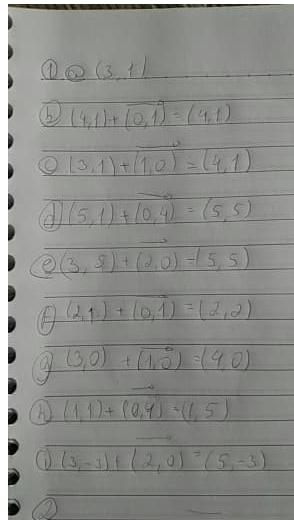 ① ⓐ (3,1)
ⓑ (4,1)+(0,1)=(4,1)
ⓒ (3,1)+(1,0)=(4,1)
ⓓ (5,1)+(0,4)=(5,5)
ⓔ (3,5)+(2,0)=(5,5)
ⓕ (2,1)+(0,1)=(2,2)
ⓖ (3,0)+(1,0)=(4,0)
ⓗ (1,1)+(0,4)=(1,5)
ⓘ (3,-3)+(2,0)=(5,-3)
②